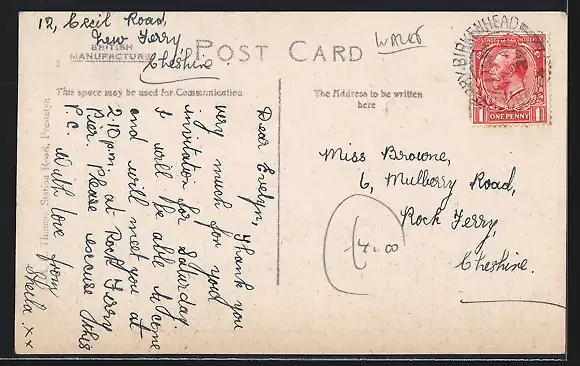 12, Cecil Road,
New Ferry
Cheshire
BRITISH
MANUFACTURE
POST CARD
WALES
This space may be used for Communication
The Address to be written
here
Dear Evelyn, Thank you
very much for your
invitation for Saturday.
I will be able to come
and will meet you at
2.10 p.m. at Rock Ferry
Pier. Please excuse this
P.C. With love from
Sheila xx
Thomas, Station Road, Prestatyn
Miss Browne,
6, Mulberry Road,
Rock Ferry,
Cheshire.
4.00
BIRKENHEAD
POSTAGE
1 ONE PENNY 1